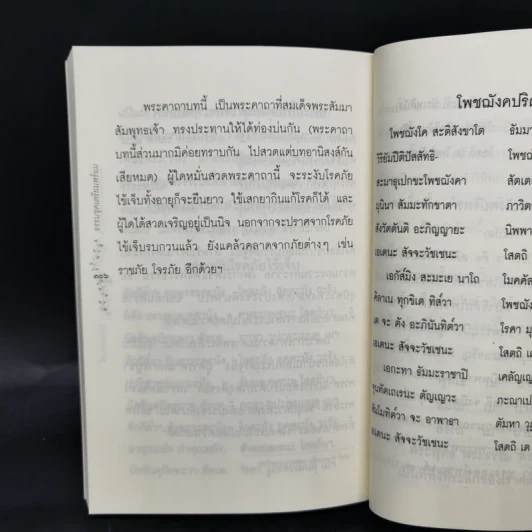 พระคาถาบทนี้ เป็นพระคาถาที่สมเด็จพระสัมมา
สัมพุทธเจ้า ทรงประทานให้ได้ท่องบ่นกัน (พระคาถา
บทนี้ส่วนมากมิค่อยทราบกัน ไปสวดแต่บทอานิสงส์กัน
เสียหมด) ผู้ใดหมั่นสวดพระคาถานี้ จะระงับโรคภัย
ไข้เจ็บทั้งอายุก็จะยืนยาว ใช้เสกยากินแก้โรคก็ได้ และ
ผู้ใดได้สวดเจริญอยู่เป็นนิจ นอกจากจะปราศจากโรคภัย
ไข้เจ็บรบกวนแล้ว ยังแคล้วคลาดจากภัยต่างๆ เช่น
ราชภัย โจรภัย อีกด้วยฯ
โพชฌังคปริต
โพชฌังโค สะติสังขาโต ธัมมา
วิริยัมปีติปัสสัทธิ- โพชฌั
สะมาธุเปกขะโพชฌังคา สัตเต
มุนินา สัมมะทักขาตา ภาวิตา
สังวัตตันติ อะภิญญายะ นิพพา
เอเตนะ สัจจะวัชเชนะ โสตถิ เ
เอกัส๎มิง สะมะเย นาโถ โมคคัล
คิลาเน ทุกขิเต ทิส๎วา โพชฌัง
เต จะ ตัง อะภินันทิต๎วา โรคา มุ
เอเตนะ สัจจะวัชเชนะ โสตถิ เต
เอกะทา ธัมมะราชาปิ เคลัญเญ
จุนทัตเถเรนะ ตัญเญวะ ภะณาเป
สัมโมทิต๎วา จะ อาพาธา ตัมหา วุ
เอเตนะ สัจจะวัชเชนะ โสตถิ เต